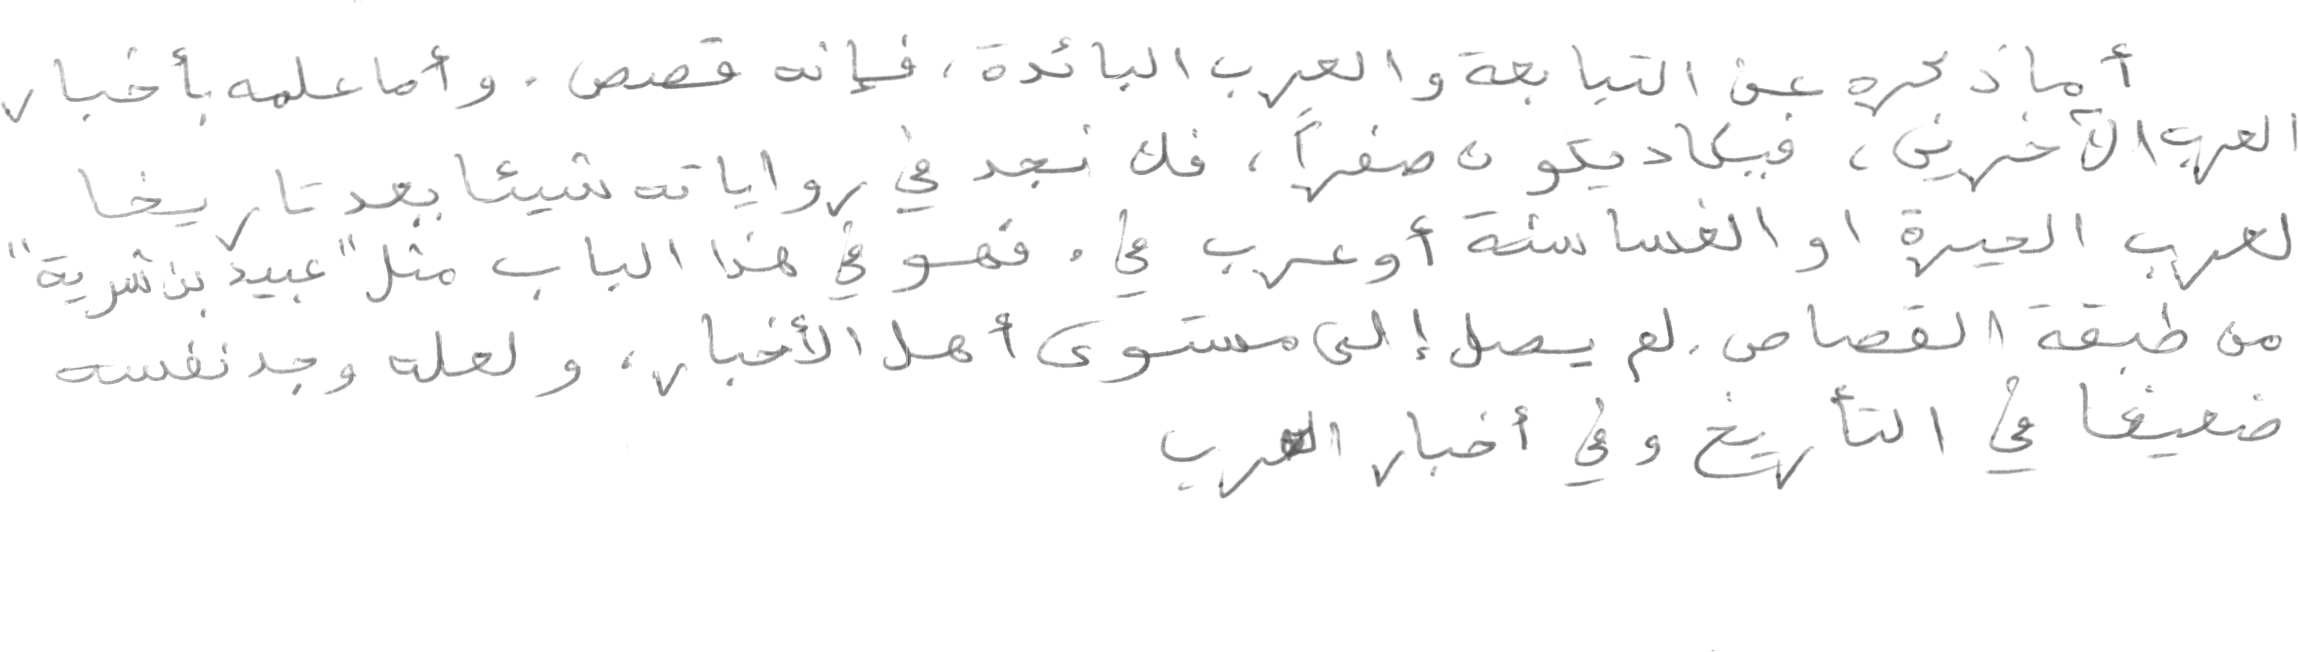 أما ذكره عن التبابعة والعرب البائدة، فإنه قصص. وأما علمه بأخبار
العرب الآخرين، فيكاد يكون صفراً، فلا نجد في رواياته شيئا يعد تاريخا
لعرب الحيرة او الغساسنة أو عرب في. فهو في هذا الباب مثل "عبيد بن شرية"
من طبقة القصاص. لم يصل إلى مستوى أهل الأخبار، ولعله وجد نفسه
ضعيفا في التأريخ وفي أخبار العرب